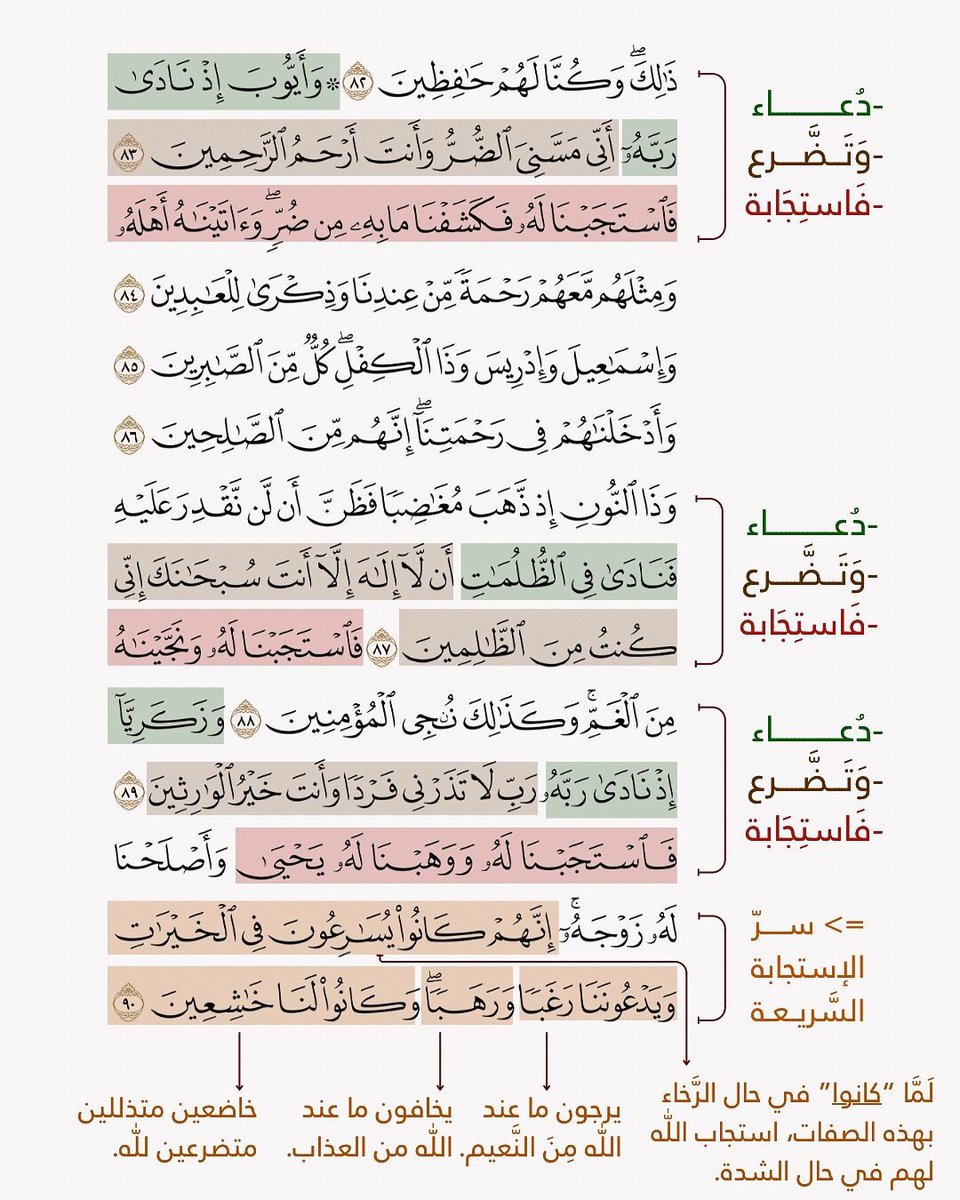 ذَٰلِكَۖ وَكُنَّا لَهُمْ حَٰفِظِينَ ٨٢ ۞ وَأَيُّوبَ إِذْ نَادَىٰ
رَبَّهُۥٓ أَنِّى مَسَّنِىَ ٱلضُّرُّ وَأَنتَ أَرْحَمُ ٱلرَّٰحِمِينَ ٨٣
فَٱسْتَجَبْنَا لَهُۥ فَكَشَفْنَا مَا بِهِۦ مِن ضُرٍّۖ وَءَاتَيْنَٰهُ أَهْلَهُۥ
-دُعـــــــاء
-وَتَــضَّـــرع
-فَاستِجَابة
وَمِثْلَهُم مَّعَهُمْ رَحْمَةً مِّنْ عِندِنَا وَذِكْرَىٰ لِلْعَٰبِدِينَ ٨٤
وَإِسْمَٰعِيلَ وَإِدْرِيسَ وَذَا ٱلْكِفْلِۖ كُلٌّ مِّنَ ٱلصَّٰبِرِينَ ٨٥
وَأَدْخَلْنَٰهُمْ فِى رَحْمَتِنَآۖ إِنَّهُم مِّنَ ٱلصَّٰلِحِينَ ٨٦
وَذَا ٱلنُّونِ إِذ ذَّهَبَ مُغَٰضِبًا فَظَنَّ أَن لَّن نَّقْدِرَ عَلَيْهِ
فَنَادَىٰ فِى ٱلظُّلُمَٰتِ أَن لَّآ إِلَٰهَ إِلَّآ أَنتَ سُبْحَٰنَكَ إِنِّى
كُنتُ مِنَ ٱلظَّٰلِمِينَ ٨٧ فَٱسْتَجَبْنَا لَهُۥ وَنَجَّيْنَٰهُ
-دُعـــــــاء
-وَتَــضَّـــرع
-فَاستِجَابة
مِنَ ٱلْغَمِّۚ وَكَذَٰلِكَ نُۨجِى ٱلْمُؤْمِنِينَ ٨٨ وَزَكَرِيَّآ
إِذْ نَادَىٰ رَبَّهُۥ رَبِّ لَا تَذَرْنِى فَرْدًا وَأَنتَ خَيْرُ ٱلْوَٰرِثِينَ ٨٩
فَٱسْتَجَبْنَا لَهُۥ وَوَهَبْنَا لَهُۥ يَحْيَىٰ وَأَصْلَحْنَا
-دُعـــــــاء
-وَتَــضَّـــرع
-فَاستِجَابة
لَهُۥ زَوْجَهُۥٓۚ إِنَّهُمْ كَانُوا۟ يُسَٰرِعُونَ فِى ٱلْخَيْرَٰتِ
وَيَدْعُونَنَا رَغَبًا وَرَهَبًاۖ وَكَانُوا۟ لَنَا خَٰشِعِينَ ٩٠
=> ســـرّ
الإستجابة
السَّريـعـة
لَمَّا “كانوا” في حال الرَّخاء
بهذه الصفات، استجاب الله
لهم في حال الشدة.
يرجون ما عند
الله مِنَ النَّعيم.
يخافون ما عند
الله من العذاب.
خاضعين متذللين
متضرعين لله.